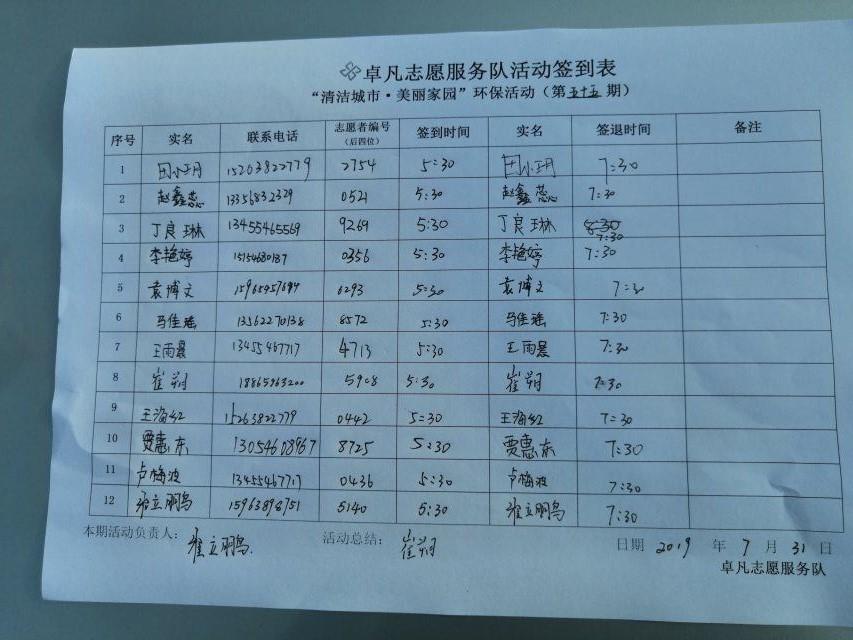 卓凡志愿服务队活动签到表
“清洁城市·美丽家园”环保活动（第五十五期）
序号 实名 联系电话 志愿者编号（后四位） 签到时间 实名 签退时间 备注
1 田小玥 15203822779 2754 5:30 田小玥 7:30
2 赵鑫蕊 13356832329 0521 5:30 赵鑫蕊 7:30
3 丁良琳 13455465569 9269 5:30 丁良琳 8:30 7:30
4 李艳婷 15154680187 0356 5:30 李艳婷 7:30
5 袁博文 0293 5:30 袁博文 7:30
6 马佳瑶 13562270138 8572 5:30 马佳瑶 7:30
7 王雨晨 13455467717 4713 5:30 王雨晨 7:30
8 崔朔 18865963200 5908 5:30 崔朔 7:30
9 王海红 15263822779 0442 5:30 王海红 7:30
10 贾惠东 13054608967 8725 5:30 贾惠东 7:30
11 卢梅波 13455467717 0436 5:30 卢梅波 7:30
12 崔立鹏 15963898751 5140 5:30 崔立鹏 7:30
本期活动负责人：崔立鹏. 活动总结：崔朔 日期 2019 年 7 月 31 日
卓凡志愿服务队